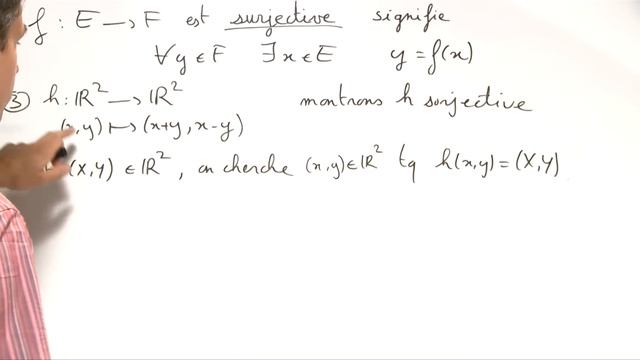 f : E → F est surjective signifie
∀y ∈ F ∃x ∈ E y = f(x)
③ h : ℝ² → ℝ² montrons h surjective
(x,y) ↦ (x+y, x-y)
(X,Y) ∈ ℝ², on cherche (x,y) ∈ ℝ² tq h(x,y) = (X,Y)